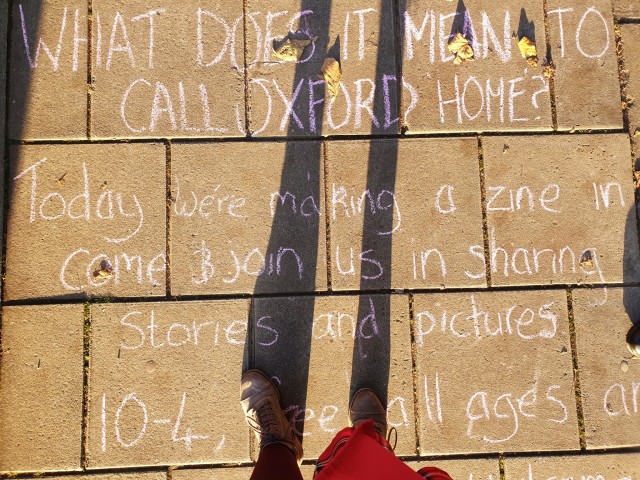 WHAT DOES IT MEAN TO
CALL OXFORD HOME?
Today we're making a zine in
Come & join us in sharing
Stories and pictures
10-4, free all ages